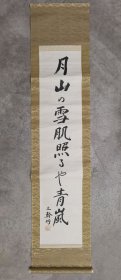 月山の雪肌照るや青嵐